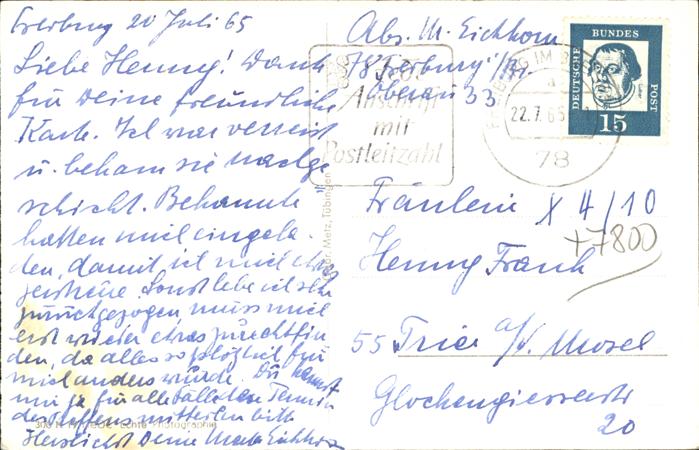 Freiburg 20 Juli 65
Liebe Henny! Dank
für Deine freundliche
Karte. Ich war verreist
u. bekam sie nachge
schickt. Bekannte
hatten mich eingela-
den, damit ich mich etwas
zerstreue. Sonst lebe ich sehr
zurückgezogen muss mich
erst wieder etwas zurechtfin
den, da alles so plötzlich für
mich anders wurde. Du kannst
mir ja für alle Fälle den Termin
des Treffens mitteilen bitte
Herzlichst Deine Eichhorn
Abs. M. Eichhorn
78 Freiburg i/Br.
Oberau 33
Anschrift
mit
Postleitzahl
FREIBURG IM
22.7.65
78
DEUTSCHE BUNDES POST
15
Metz, Tübingen
Fräulein
X 4/10
+7800
Henny Frank
55 Trier a/d. Mosel
Glockengiesserstr
20
Echte Photographie